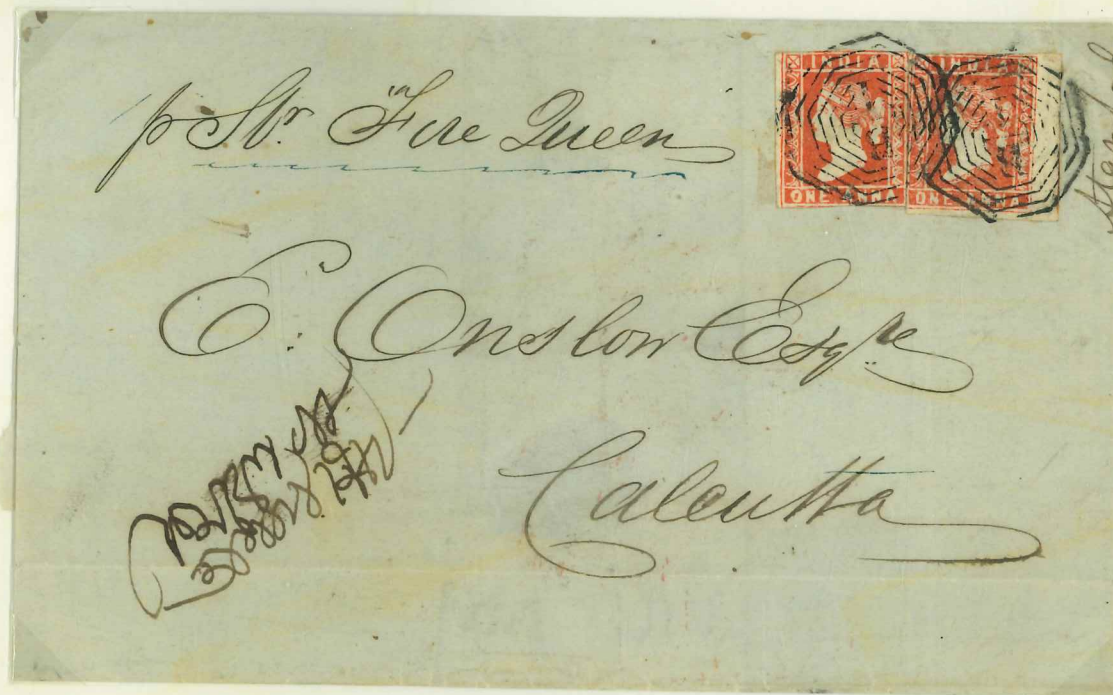 p Str Fire Queen
INDIA INDIA
ONE ANNA ONE ANNA
E. Onslow Esqre
Calcutta